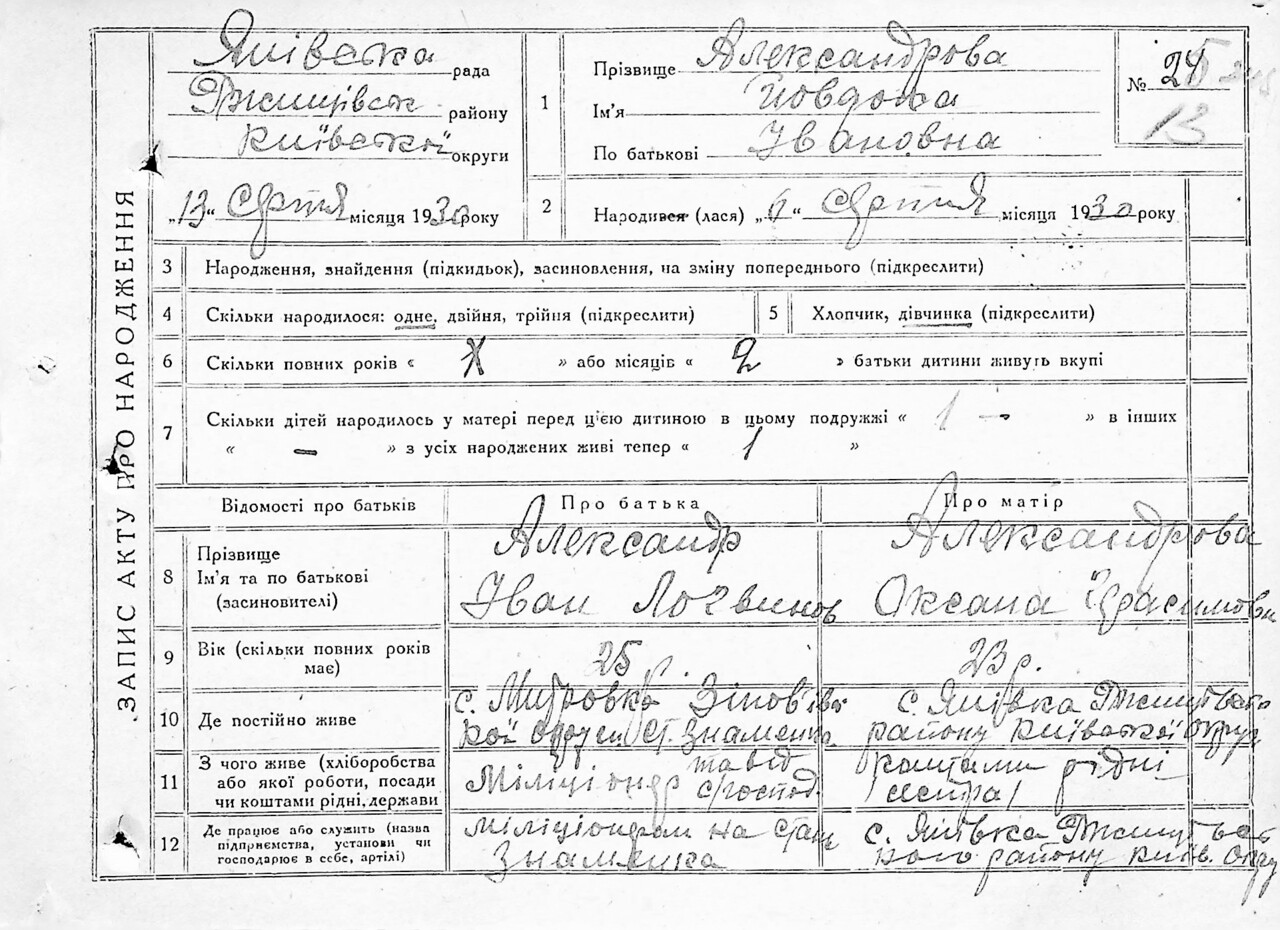 ЗАПИС АКТУ ПРО НАРОДЖЕННЯ
Яшівська рада
Ржищівськ району
Київської округи
„13“ Серпня місяця 1930 року
1
Прізвище Александрова
Ім'я Йовдоха
По батькові Івановна
№ 24
13
2
Народився (лася) „6“ Серпня місяця 1930 року
3 Народження, знайдення (підкидьок), засиновлення, на зміну попереднього (підкреслити)
4 Скільки народилося: одне, двійня, трійня (підкреслити)
5 Хлопчик, дівчинка (підкреслити)
6 Скільки повних років « Х » або місяців « 2 » батьки дитини живуть вкупі
7 Скільки дітей народилось у матері перед ц'єю дитиною в цьому подружжі « 1 — » в інших
« — » з усіх народжених живі тепер « 1 »
Відомості про батьків Про батька Про матір
8 Прізвище
Ім'я та по батькові
(засиновителі)
Александр
Іван Логвинов
Александрова
Оксана Герасимовн
9 Вік (скільки повних років має)
25 р.
23 р.
10 Де постійно живе
с. Митровка Зінов'ївс
кої округи ст. Знаменка
с. Яшівка Ржищівсько
району Київської округ
11 З чого живе (хліборобства
або якої роботи, посади
чи коштами рідні, держави
Міліціонер та від с/господ.
коштами рідні
/сестра/
12 Де працює або служить (назва
підприємства, установи чи
господарює в себе, артілі)
міліціонером на стан
Знаменка
с. Яшівка Ржищівсь
кого району Київ. Округ